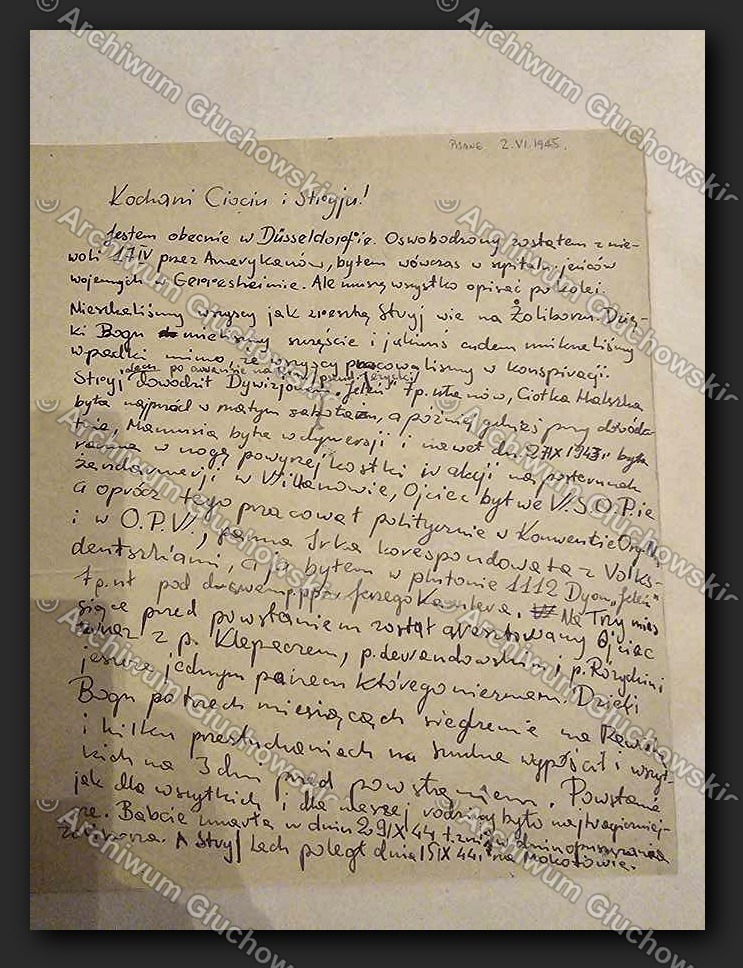 PISANE 2.VI.1945.
Kochani Ciociu i Stryju!
Jestem obecnie w Düsseldorfie. Oswobodzony zostałem z nie-
woli 17 IV przez Amerykanów, byłem wówczas w szpitalu jeńców
wojennych w Gerresheimie. Ale muszę wszystko opisać po kolei.
Mieszkaliśmy wszyscy jak zresztą Stryj wie na Żoliborzu. Dzię-
ki Bogu mieliśmy szczęście i jakimś cudem uniknęliśmy
wpadki mimo, że wszyscy pracowaliśmy w konspiracji.
Stryj Lech po awansie na
dowodził Dywizjonem "Jeleń" 7 p. ułanów, Ciotka Halszka
była najpierw w małym sabotażu, a później gdzieś przy dowódz-
twie, Mamusia była w dywersji i nawet dn. 27 IX 1943 r była
ranna w nogę powyżej kostki w akcji na posterunek
żandarmerji w Wilanowie, Ojciec był we W.S.O.P.ie
a oprócz tego pracował politycznie w Konwencie Org. N.
i w O.P.W., Irka korespondowała z Volks-
deutschami, a ja byłem w plutonie 1112 Dyon. "Jeleń"
7 p. uł pod Jerzego. Na Trzy mies
siące przed powstaniem został aresztowany Ojciec
wraz z p. Klepaczem, p. Lewandowskim, p. Różyckim i
jeszcze jednym panem którego nie znam. Dzięki
Bogu po trzech miesiącach siedzenia na
i kilku przesłuchaniach na Szucha wypuścili wszyst-
kich na 3 dni przed powstaniem. Powstanie
jak dla wszystkich i dla naszej rodziny było najtragiczniej-
sze. Babcia umarła w dniu 29 IX 44 t.zn. w dniu opuszczania
Żoliborza. A Stryj Lech poległ dnia 15 IX 44 r na Mokotowie.
© Archiwum Głuchowskich